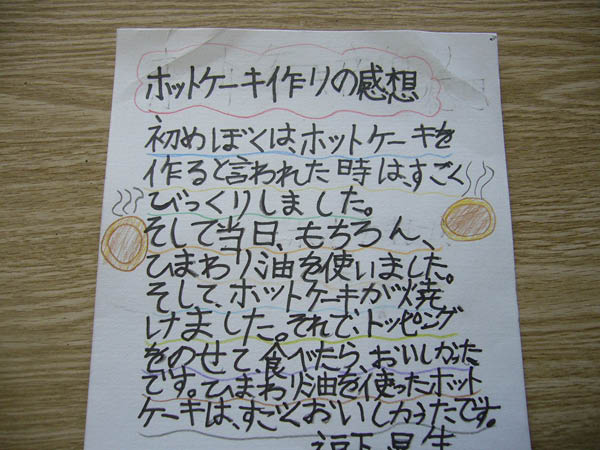 ホットケーキ作りの感想
初めぼくは、ホットケーキを
作ると言われた時は、すごく
びっくりしました。
そして当日、もちろん、
ひまわり油を使いました。
そして、ホットケーキが焼
けました。それで、トッピング
をのせて、食べたら、おいしかった
です。ひまわり油を使ったホット
ケーキは、すごくおいしかったです。